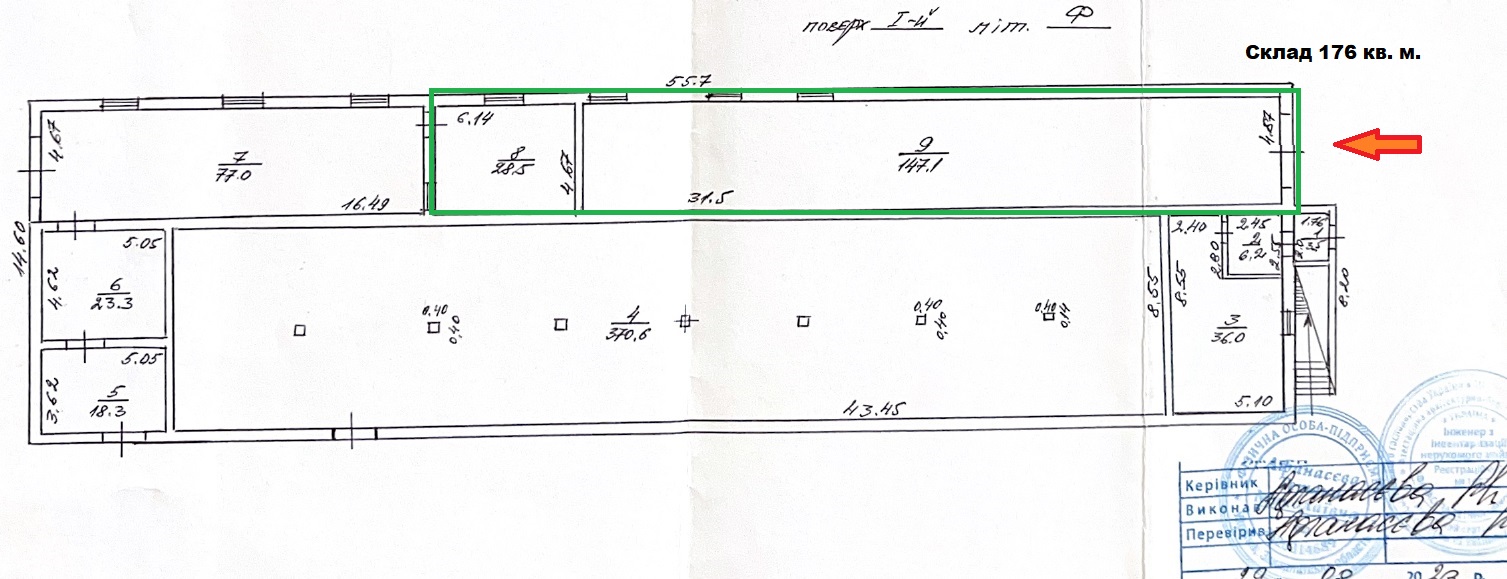 поверх I-й літ. Ф
Склад 176 кв. м.
55.7
4.67
7
77.0
16.49
6.14
8
28.5
4.67
9
147.1
31.5
4.67
14.60
5.05
6
23.3
4.62
5.05
5
18.3
3.62
0,40
0,40
4
370,6
0,40
0,40
0,40
0,14
43.45
8.55
8.55
2.40
2.80
2.45
2
6,2
2.55
1.76
3
36.0
5.10
8.20
Керівник
Виконав
Перевірив
Інженер з